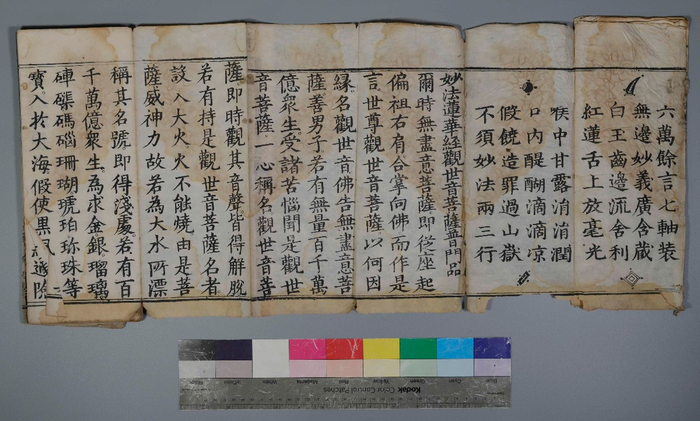 六萬餘言七軸裝
無邊妙義廣含藏
白玉齒邊流舍利
紅蓮舌上放毫光
喉中甘露消消潤
口內醍醐滴滴凉
假饒造罪過山嶽
不須妙法兩三行
妙法蓮華經觀世音菩薩普門品
爾時無盡意菩薩即從座起
偏袒右肩合掌向佛而作是
言世尊觀世音菩薩以何因
緣名觀世音佛告無盡意菩
薩善男子若有無量百千萬
億衆生受諸苦惱聞是觀世
音菩薩一心稱名觀世音菩
薩即時觀其音聲皆得解脫
若有持是觀世音菩薩名者
設入大火火不能燒由是菩
薩威神力故若為大水所漂
稱其名號即得淺處若有百
千萬億衆生為求金銀瑠璃
硨磲碼碯珊瑚琥珀珍珠等
寶入於大海假使黑風
Kodak Color Control Patches
Black 3/Color White Magenta Red Yellow Green Cyan Blue